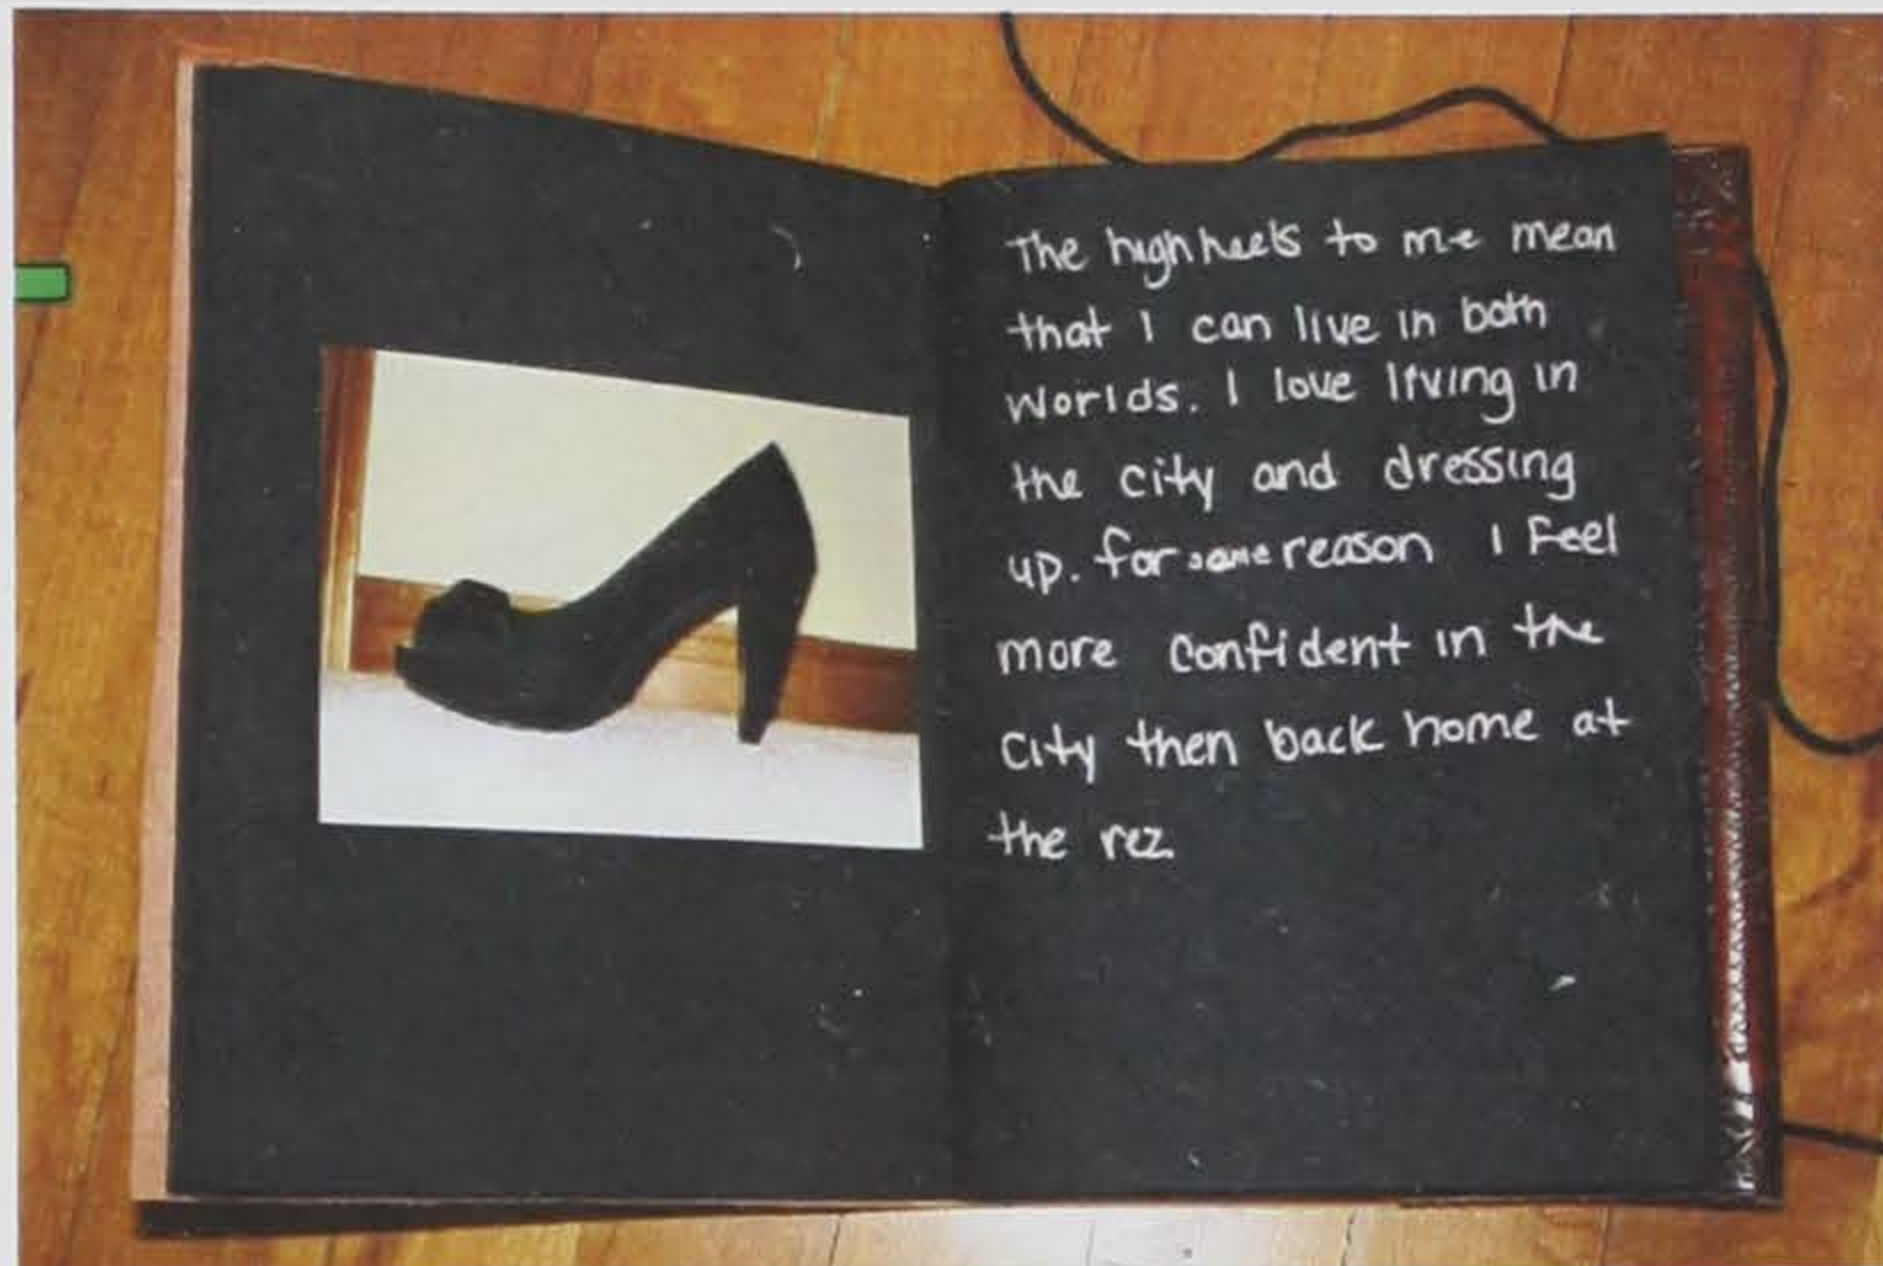 The high heels to me mean
that I can live in both
worlds. I love living in
the city and dressing
up. for some reason I feel
more confident in the
city then back home at
the rez.